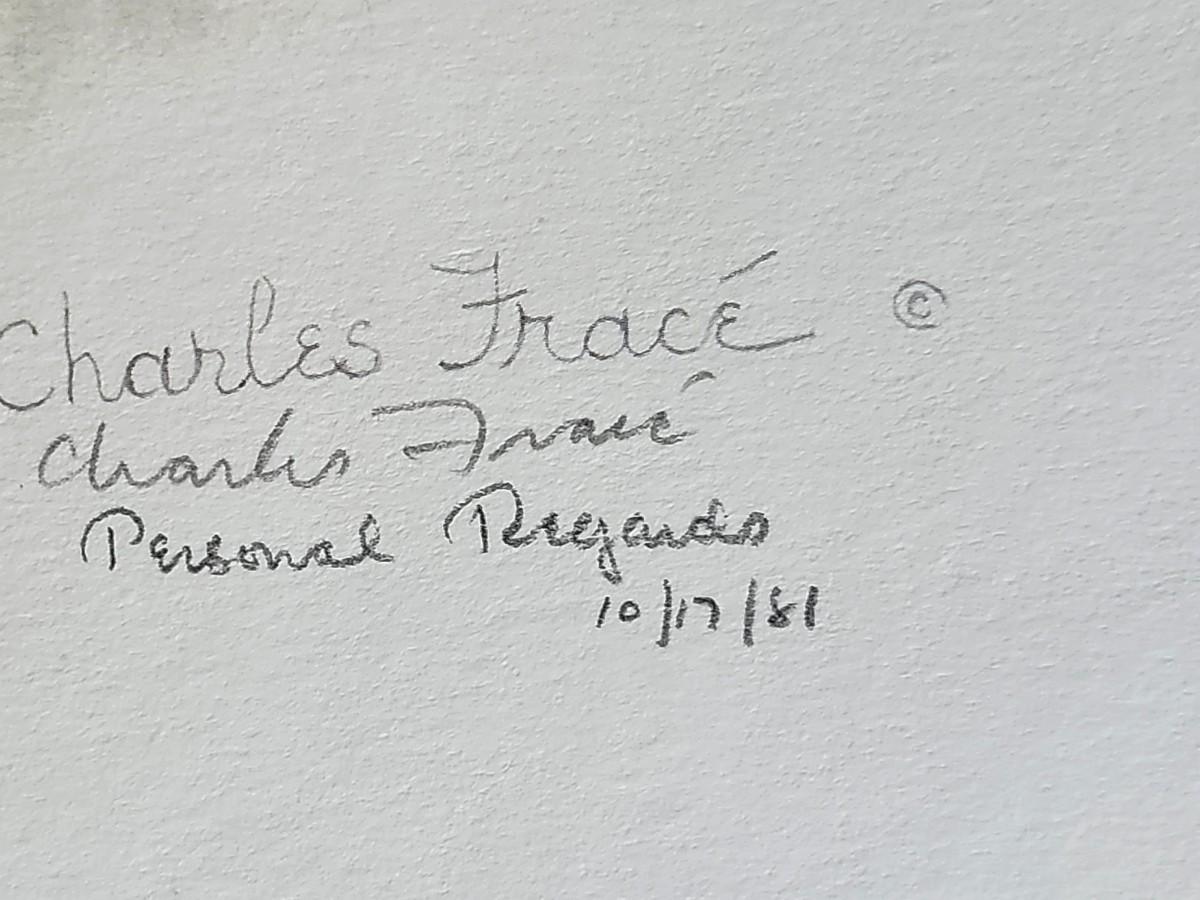 Charles Fracé ©
Charles Fracé
Personal Regards
10/17/81